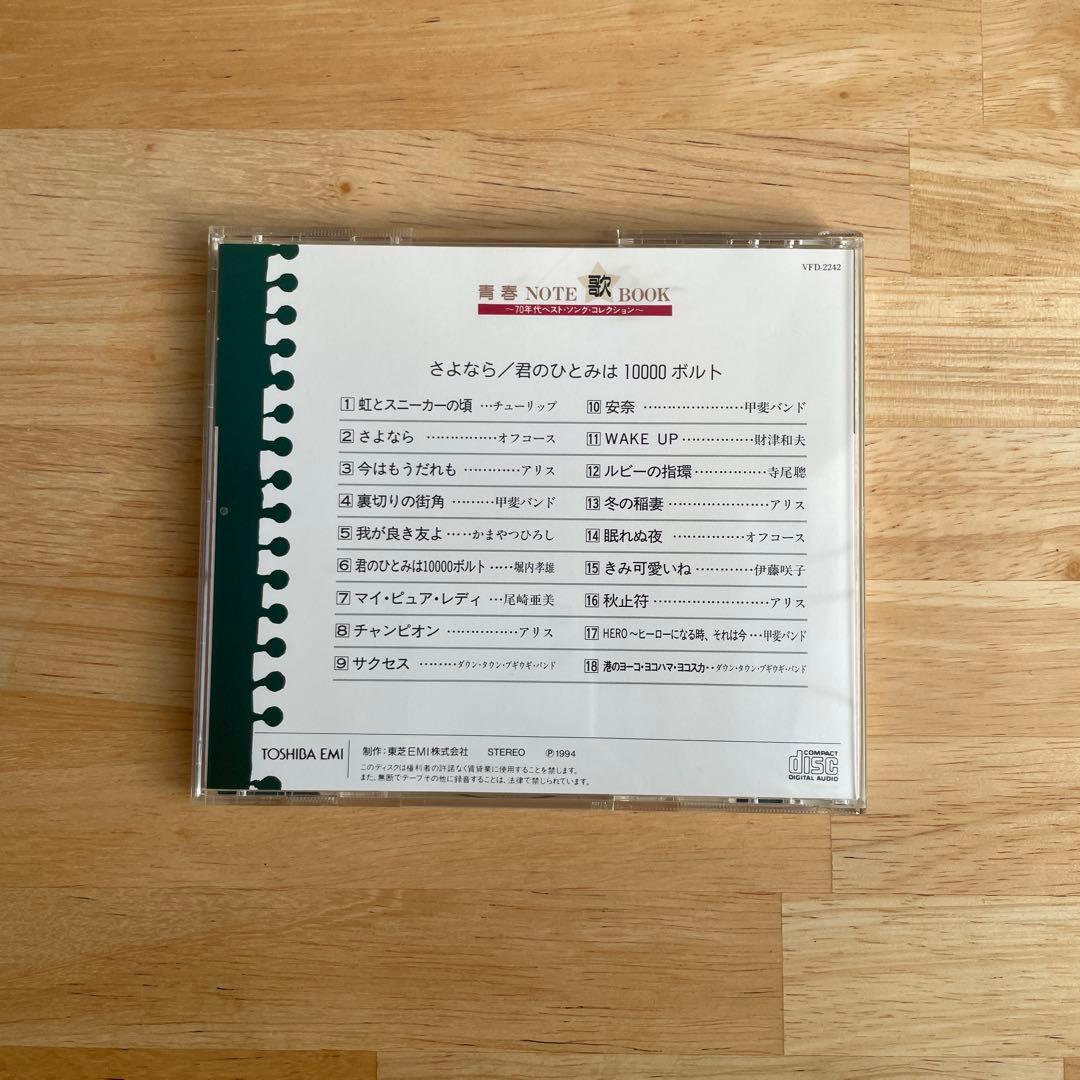 VFD-2242
青春 NOTE 歌 BOOK
〜70年代ベスト・ソング・コレクション〜
さよなら／君のひとみは 10000 ボルト
1 虹とスニーカーの頃 …チューリップ
2 さよなら ……………オフコース
3 今はもうだれも …………アリス
4 裏切りの街角 ………甲斐バンド
5 我が良き友よ ‥‥‥かまやつひろし
6 君のひとみは10000ボルト ‥‥‥堀内孝雄
7 マイ・ピュア・レディ …尾崎亜美
8 チャンピオン ……………アリス
9 サクセス ………ダウン・タウン・ブギウギ・バンド
10 安奈 …………………甲斐バンド
11 WAKE UP ……………財津和夫
12 ルビーの指環 ……………寺尾聰
13 冬の稲妻 …………………アリス
14 眠れぬ夜 ……………オフコース
15 きみ可愛いね …………伊藤咲子
16 秋止符 ……………………アリス
17 HERO〜ヒーローになる時、それは今 …甲斐バンド
18 港のヨーコ・ヨコハマ・ヨコスカ ‥ダウン・タウン・ブギウギ・バンド
TOSHIBA EMI
制作：東芝EMI株式会社 STEREO ℗1994
このディスクは権利者の許諾なく賃貸業に使用することを禁じます。
また、無断でテープその他に録音することは、法律で禁じられています。
COMPACT
disc
DIGITAL AUDIO